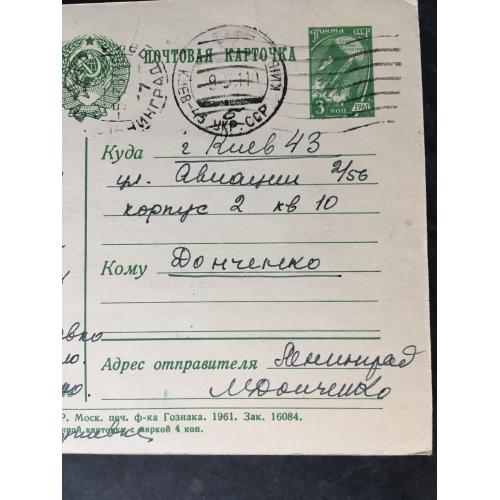 ПОЧТОВАЯ КАРТОЧКА
ПОЧТА СССР
3 КОП. 1961
КИЕВ-43
УКР. ССР
Куда г Киев 43
ул. Авиации 2/56
корпус 2 кв 10
Кому Донченко
Адрес отправителя Ленинград
МДонченко
Р. Моск. печ. ф-ка Гознака. 1961. Зак. 16084.
чной карточки с маркой 4 коп.